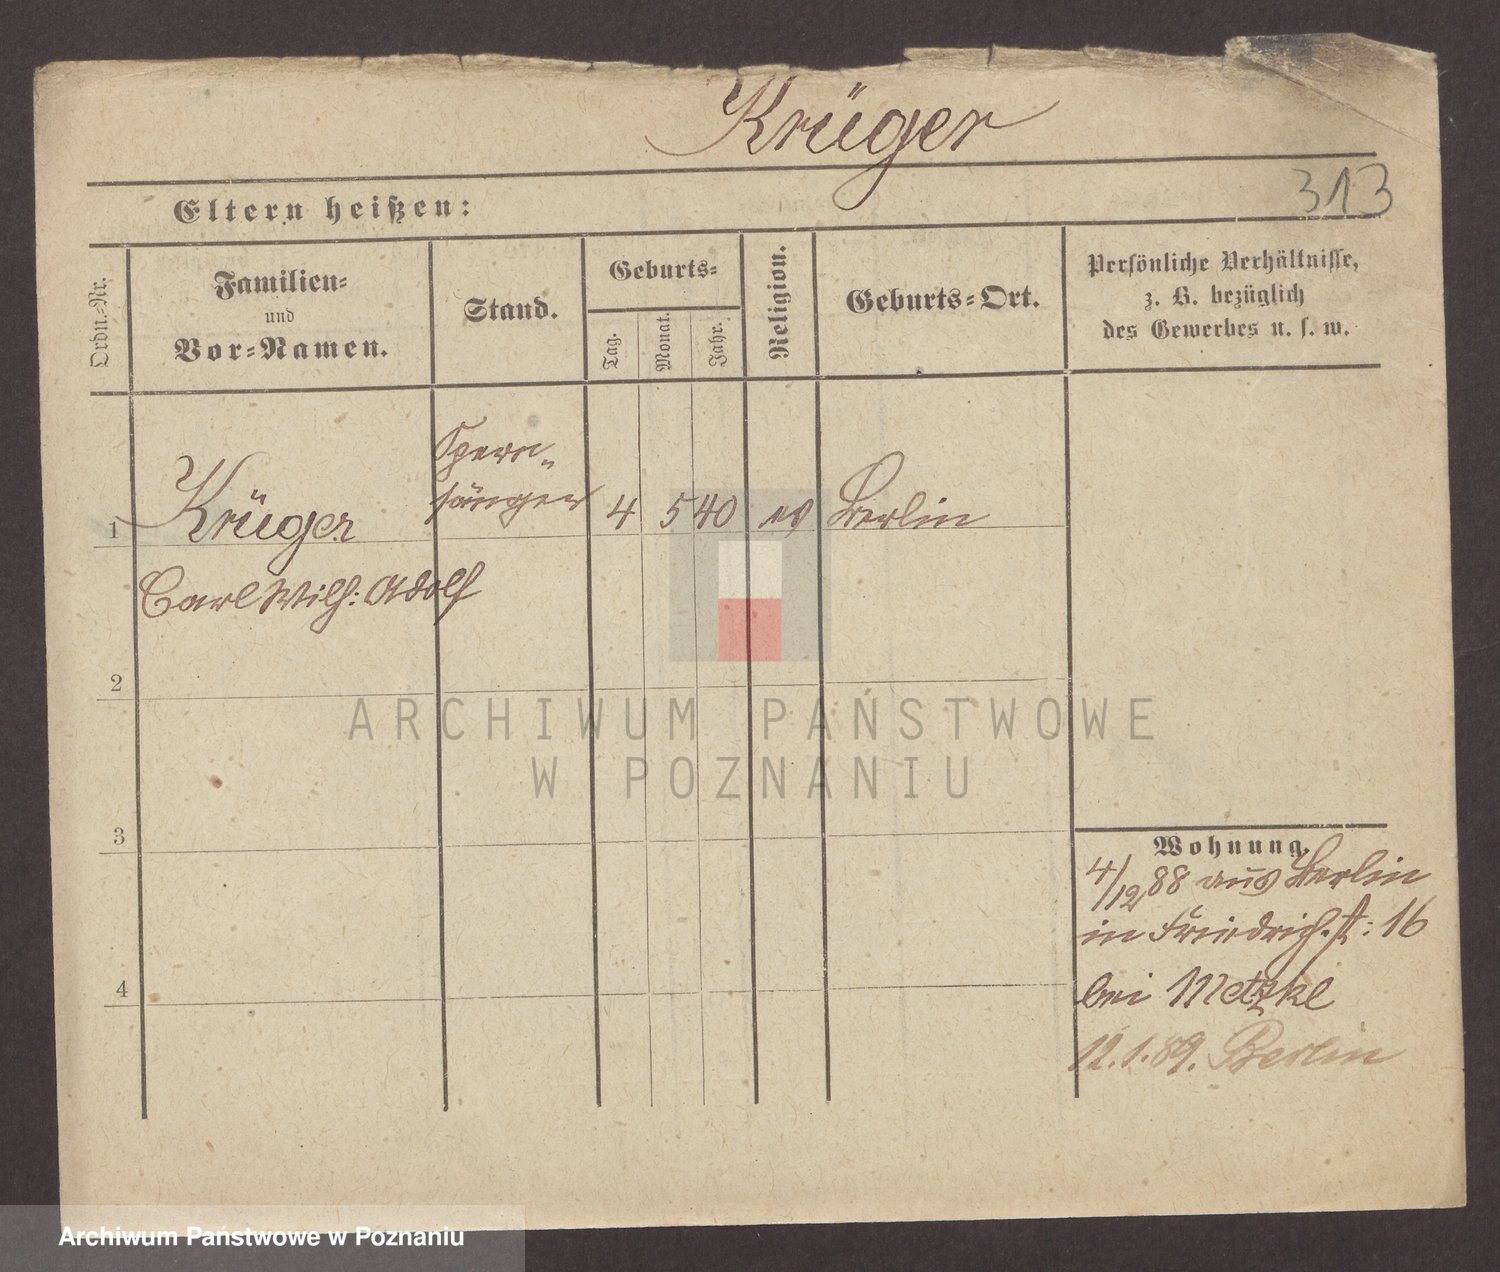 Krüger
313
Eltern heißen:
Ordn.-Nr.
Familien-
und
Vor-Namen.
Stand.
Geburts-
Tag.
Monat.
Jahr.
Religion.
Geburts-Ort.
Persönliche Verhältnisse,
z. B. bezüglich
des Gewerbes u. s. w.
1 Krüger Opern- sänger 4 5 40 ev Berlin
Carl Wilh: Adolf
2
3
4
Wohnung.
4/12 88 aus Berlin
in Friedrich.st: 16
bei Metzke
12.1.89. Berlin
ARCHIWUM PAŃSTWOWE
W POZNANIU
Archiwum Państwowe w Poznaniu